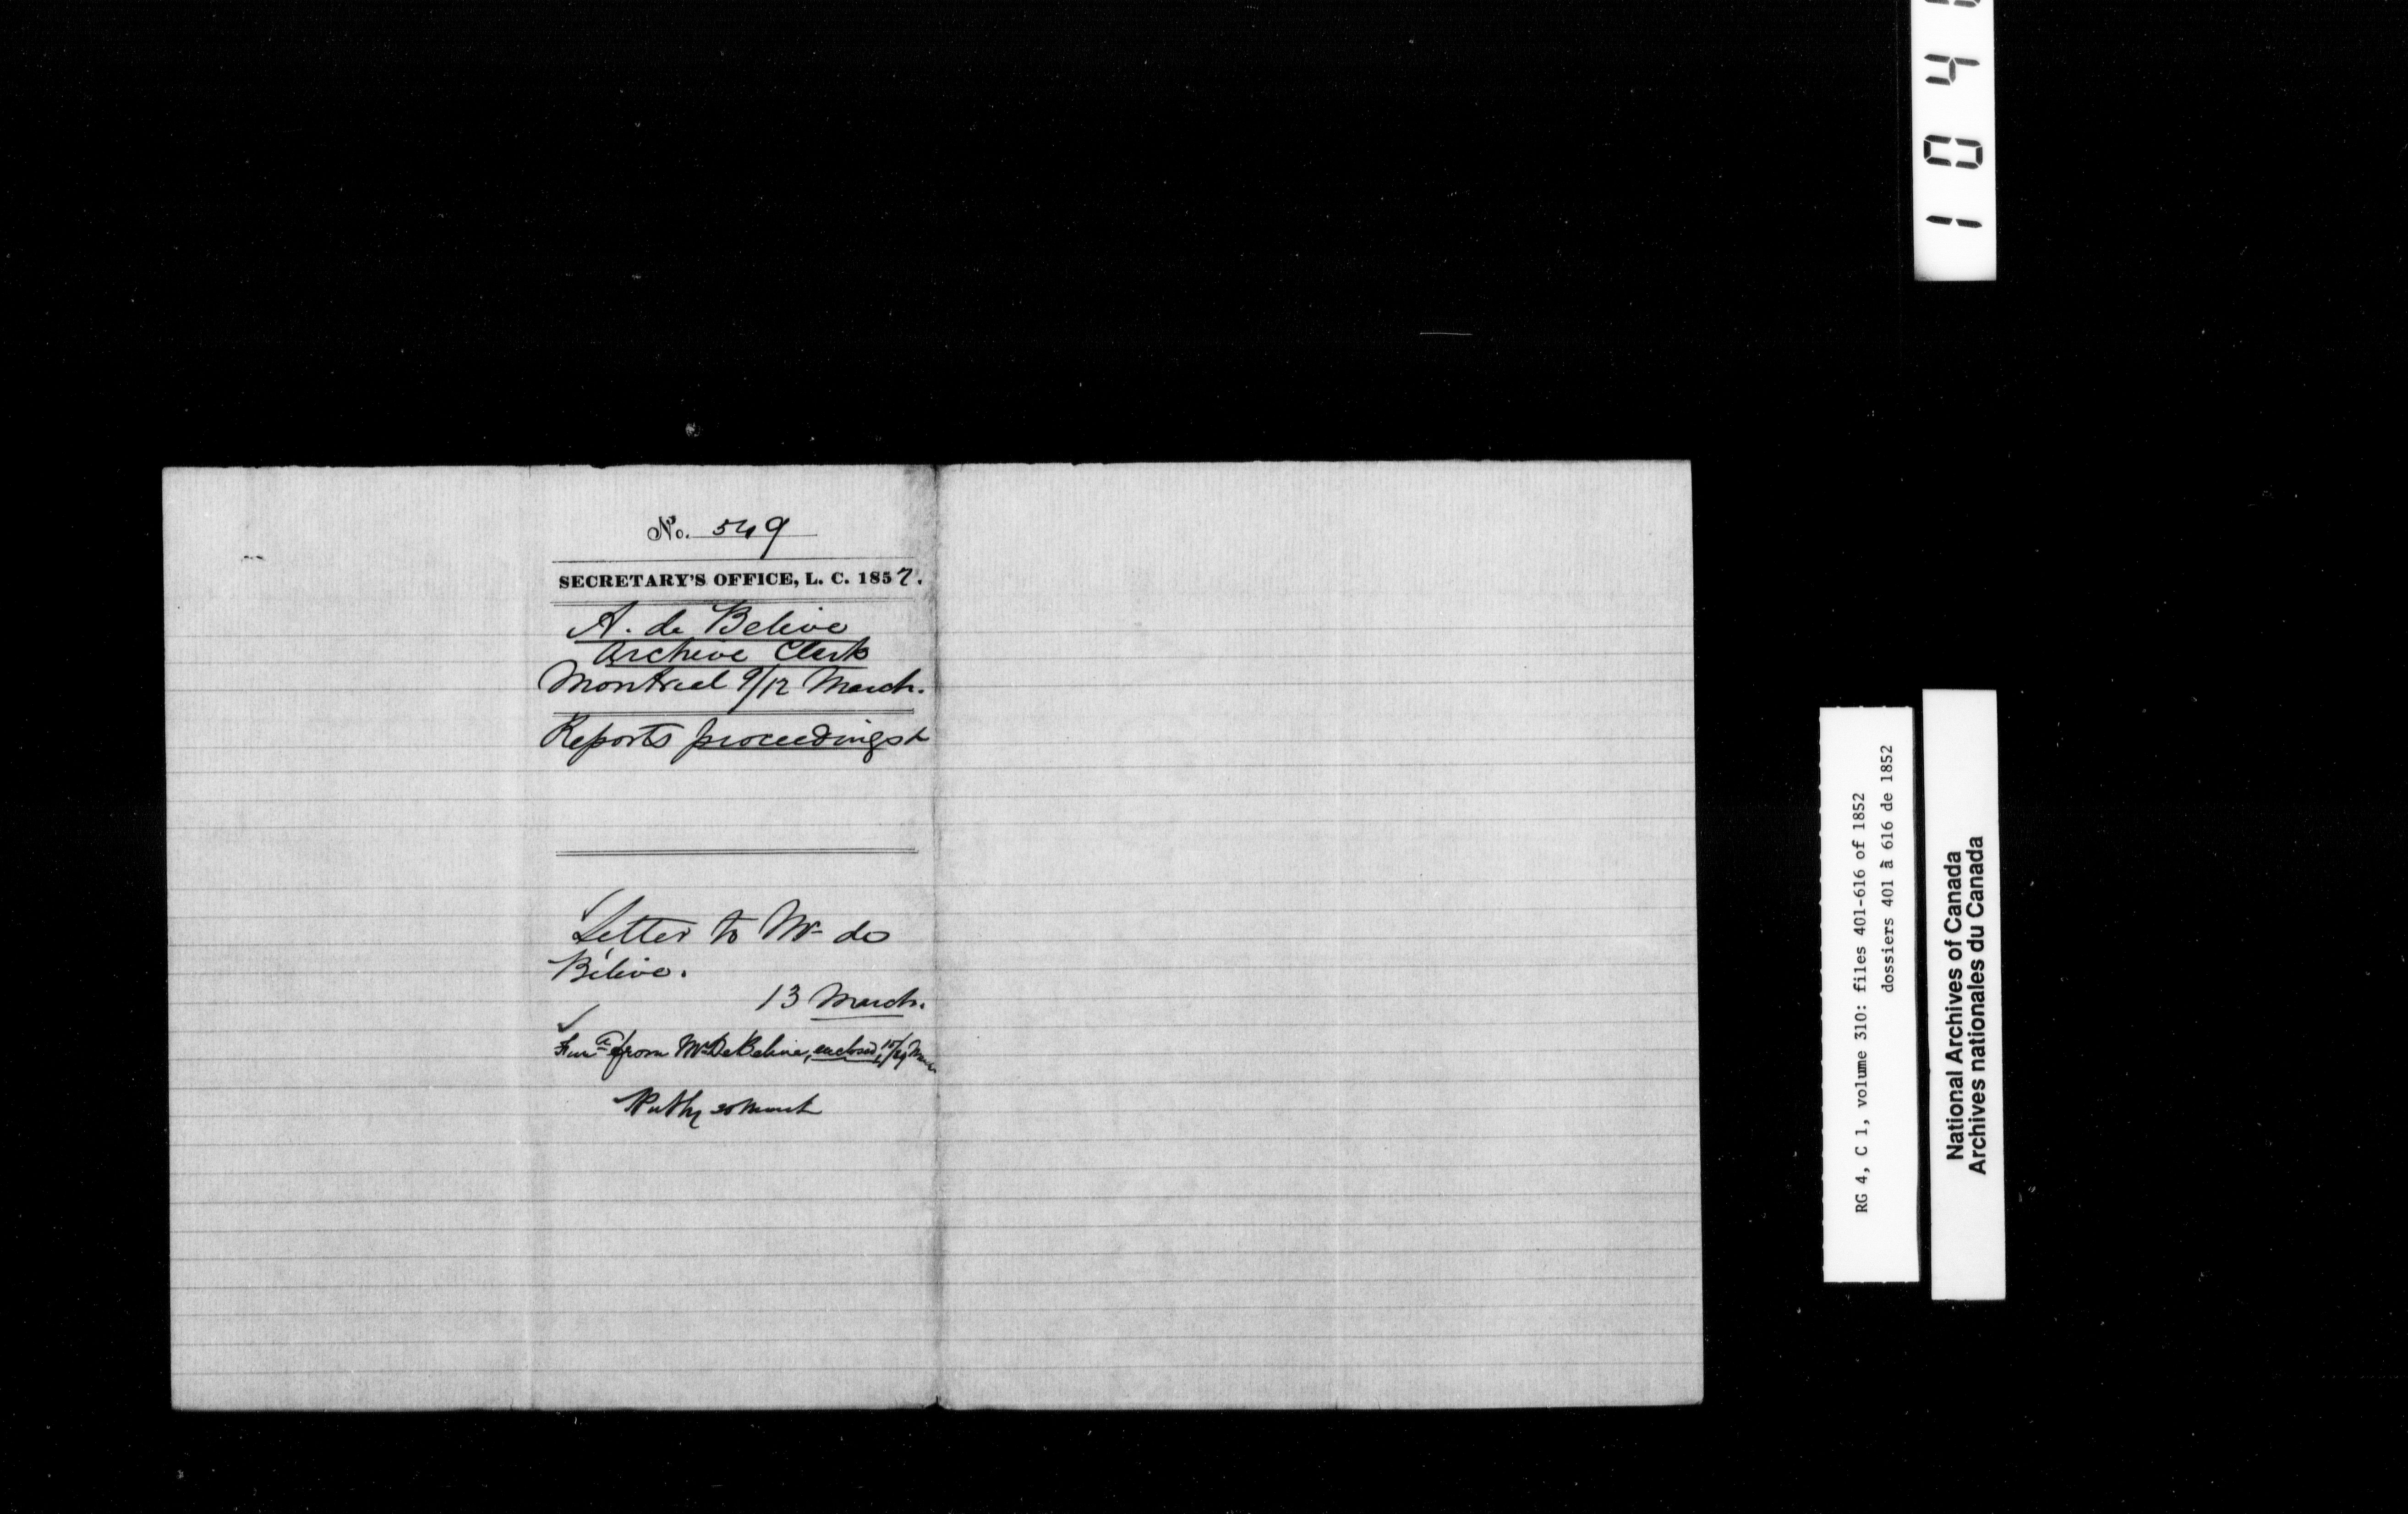 No. 549
SECRETARY'S OFFICE, L. C. 1852.
A. de Belive
Archive Clerk
Montreal 9/12 March.
Reports proceedings &
Letter to Mr. de
Bélive.
13 March.
from Mr. De Belive, enclosed,
RG 4, C 1, volume 310: files 401-616 of 1852
dossiers 401 à 616 de 1852
National Archives of Canada
Archives nationales du Canada
1 0 4